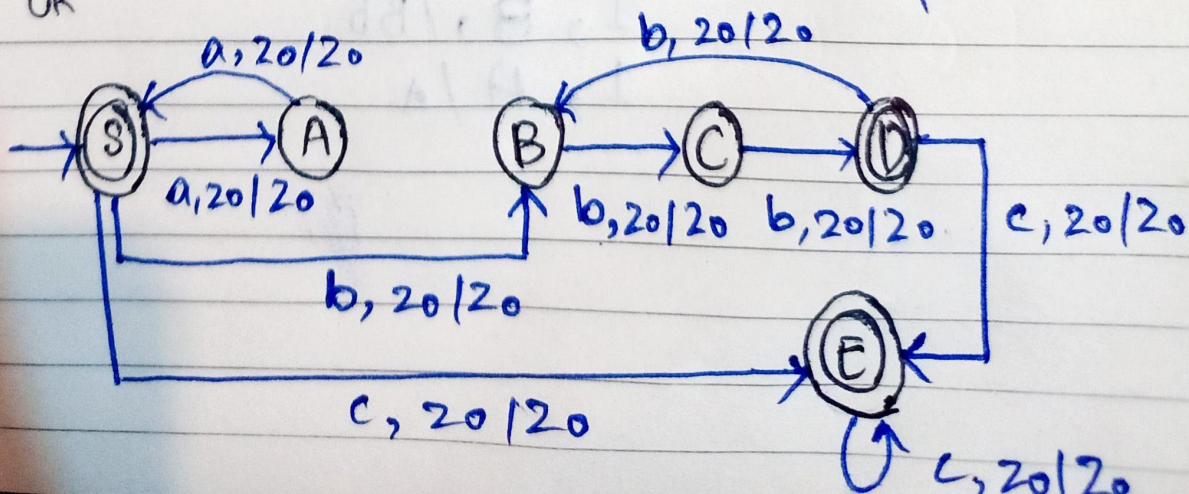 OR
a, 20/20
b, 20/20
S
A
B
C
D
a, 20/20
b, 20/20
b, 20/20
c, 20/20
b, 20/20
E
c, 20/20
c, 20/20